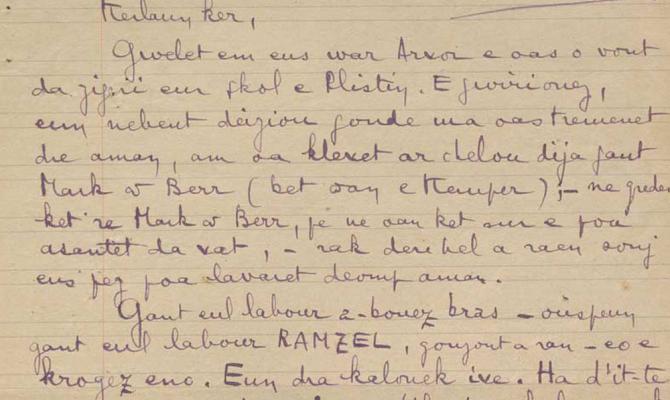 ker,
Gwelet em eus war Arvor e oas o vont
da zigeri eur skol e Plistin. E gwirionez,
eun nebeut deiziou goude ma oas tremenet
dre aman, am oa klevet ar c'helou dija gant
Mark ar Berr (bet oan e Kemper); - ne greden
ket 're Mark ar Berr, pe ne oan ket sur e poa
asantet da vat, - rak derc'hel a raen sonj
eus pez poa lavaret deomp aman.
Gant eul labour a-bouez bras - ouspenn
gant eul labour RAMZEL, a ran - eo e
krogez eno. Eun dra kalonek ive. Ha d'it-te